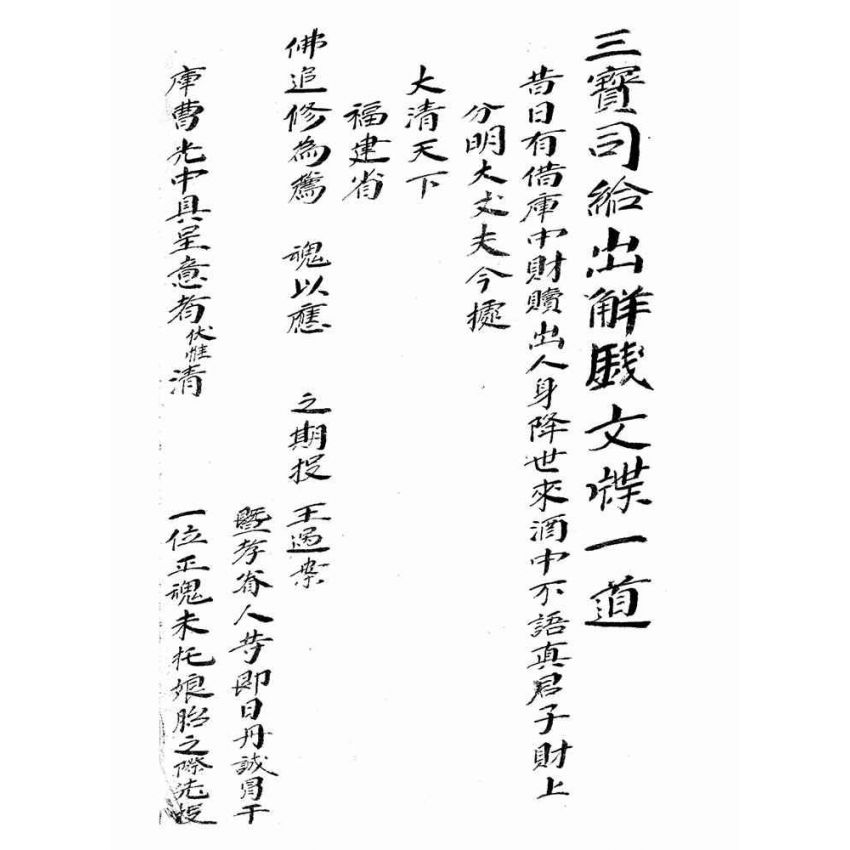 三寶司給出解錢文牒一道
昔日有借庫中財贖出人身降世來酒中不語真君子財上
分明大丈夫今據
大清天下
福建省
暨孝眷人等即日丹誠冐干
佛追修為薦　魂以應　之期投　王過案
一位正魂未托娘胎之際先投
庫曹光中具呈意者伏惟清